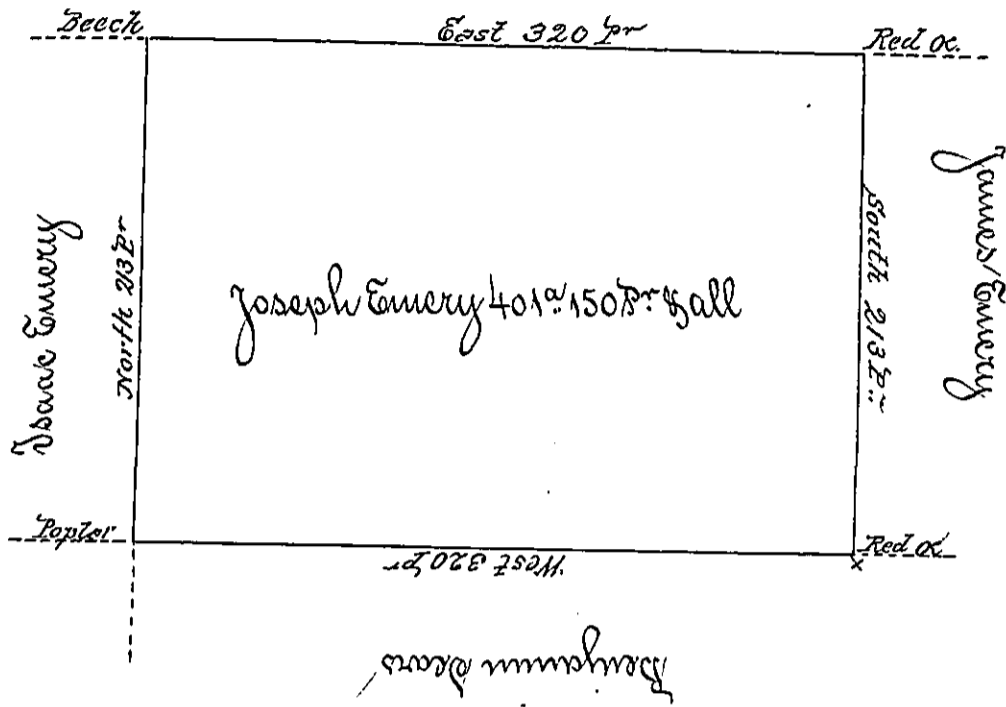 Beech
East 320 Pr
Red O.
Isaac Emery
North 213 Pr
Joseph Emery 401a. 150 Pr. & all
South 213 Pr.
James Emery
Popler
West 320 pr
Red O
x
Benjamin Sears